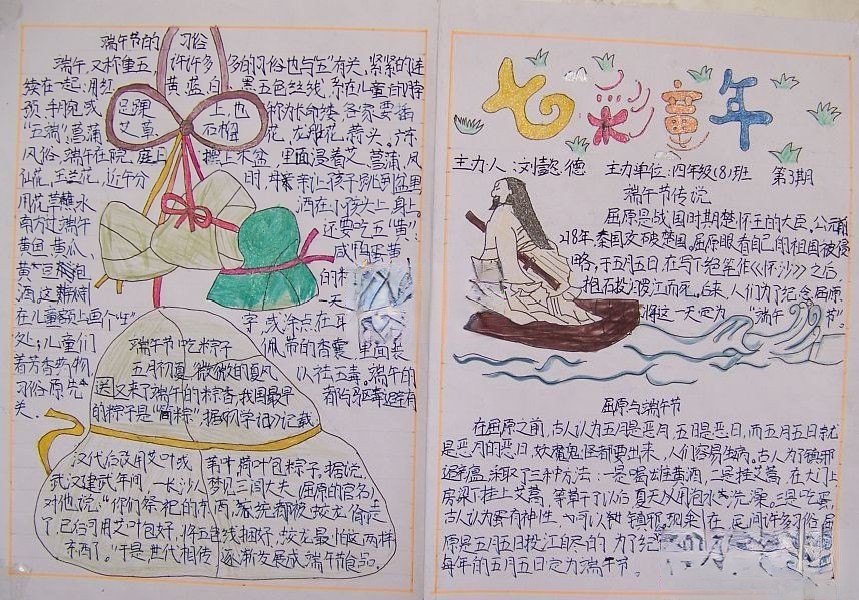 端午节的 习俗
端午,又称重五,许许多多的习俗也与"五"有关,紧紧的连
续在一起,用红黄蓝白黑五色丝线系在儿童的脖
预手腕或足踝上,也称为长命缕,各家要插
"五端"菖蒲艾草石榴花,
风俗,端午在院庭上摆上木盆,里面浸着艾菖蒲,凤
仙花,玉兰花,近午分时,母亲让孩子跳到盆里
用花草蘸水洒在小孩头上身上。
南方过端午还要吃五"黄":
黄鱼、黄瓜、咸鸭蛋黄,
黄豆
酒。这
一天
在儿童额上画个"王"字,或涂点在耳
处;儿童们佩带的香囊里面装
着芳香药物,以祛五毒。端午的
习俗原先都与驱瘟避
关。
端午节吃粽子
五月初夏,微微的夏风
送又来了端午的粽香,我国最早
的粽子是"筒粽",据《 》记载
汉代后改用艾叶或苇叶荷叶包粽子。据说,
武汉建武年间,一长沙人梦见三闾大夫(屈原的官名)
对他说:"你们祭祀的东西,系统都被蛟龙偷走
了,已后可用艾叶包好,将五色线捆好,蛟龙最怕这两样
东西了。"于是世代相传逐渐发展成端午节食品。
七彩童年
主力人:刘 德 主力单位:四年级(8)班 第3期
端午节传说
屈原是战国时期楚怀王的大臣。公元前
218年,秦国攻破楚国。屈原眼看自己的祖国被侵
略,于五月五日,在写下绝笔作《怀沙》之后,
抱石投汨罗江而死。后来,人们为了纪念屈原
将这一天定为"端午节"。
屈原与端午节
在屈原之前,古人认为五月是恶月,五日是恶日,而五月五日就
是恶月的恶日,妖魔鬼怪都要出来,人们容易生病。古人为了镇邪
避瘟,采取了三种方法:一是喝雄黄酒,二是挂艾蒿,在大门上
房梁上挂上艾蒿,等草干了以后夏天 用包水去洗澡。三是吃蛋
古人认为蛋有神性,可以 镇邪。现 在民间许多习俗
原是五月五日投江自尽的,为了纪
每年的五月五日定为端午节。